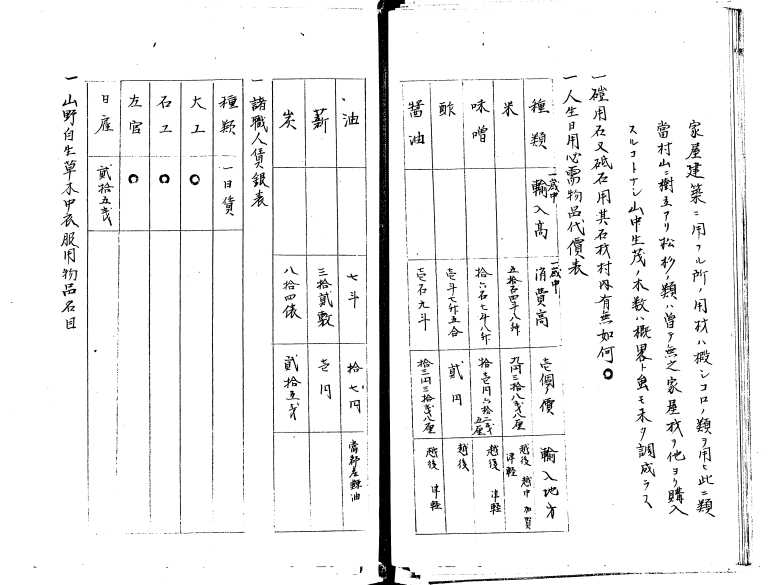 家屋建築ニ用フル所ノ用材ハ椴シコロノ類ヲ用ヒ此ニ類
當村山ニ樹立アリ松杉ノ類ハ曽テ無之家屋材ヲ他ヨリ購入
スルコトナシ山中生茂ノ木数ハ概畧ト雖モ未タ調成ラス
一 礎用石又砥石用其石材村内有無如何〇
一 人生日用必需物品代價表
種類 一歳中輸入高 一歳中消費高 壱個ノ價 輸入地方
米 五拾四年八斗 九円三拾八銭八厘 越後 越中 加賀 津軽
味噌 拾六石七斗八升 拾壱円六拾二銭五厘 越後 津軽
酢 壱斗七升五合 貳円 越後
醤油 壱石九斗 拾三円三拾銭八厘 越後 津軽
油 七斗 拾七円 當郡産鰊油
薪 三拾貳敷 壱円
炭 八拾四俵 貳拾五銭
一 諸職人賃銀表
種類 一日賃
大工 〇
石工 〇
左官 〇
日雇 貳拾五銭
一 山野自生草木中衣服用物品名目